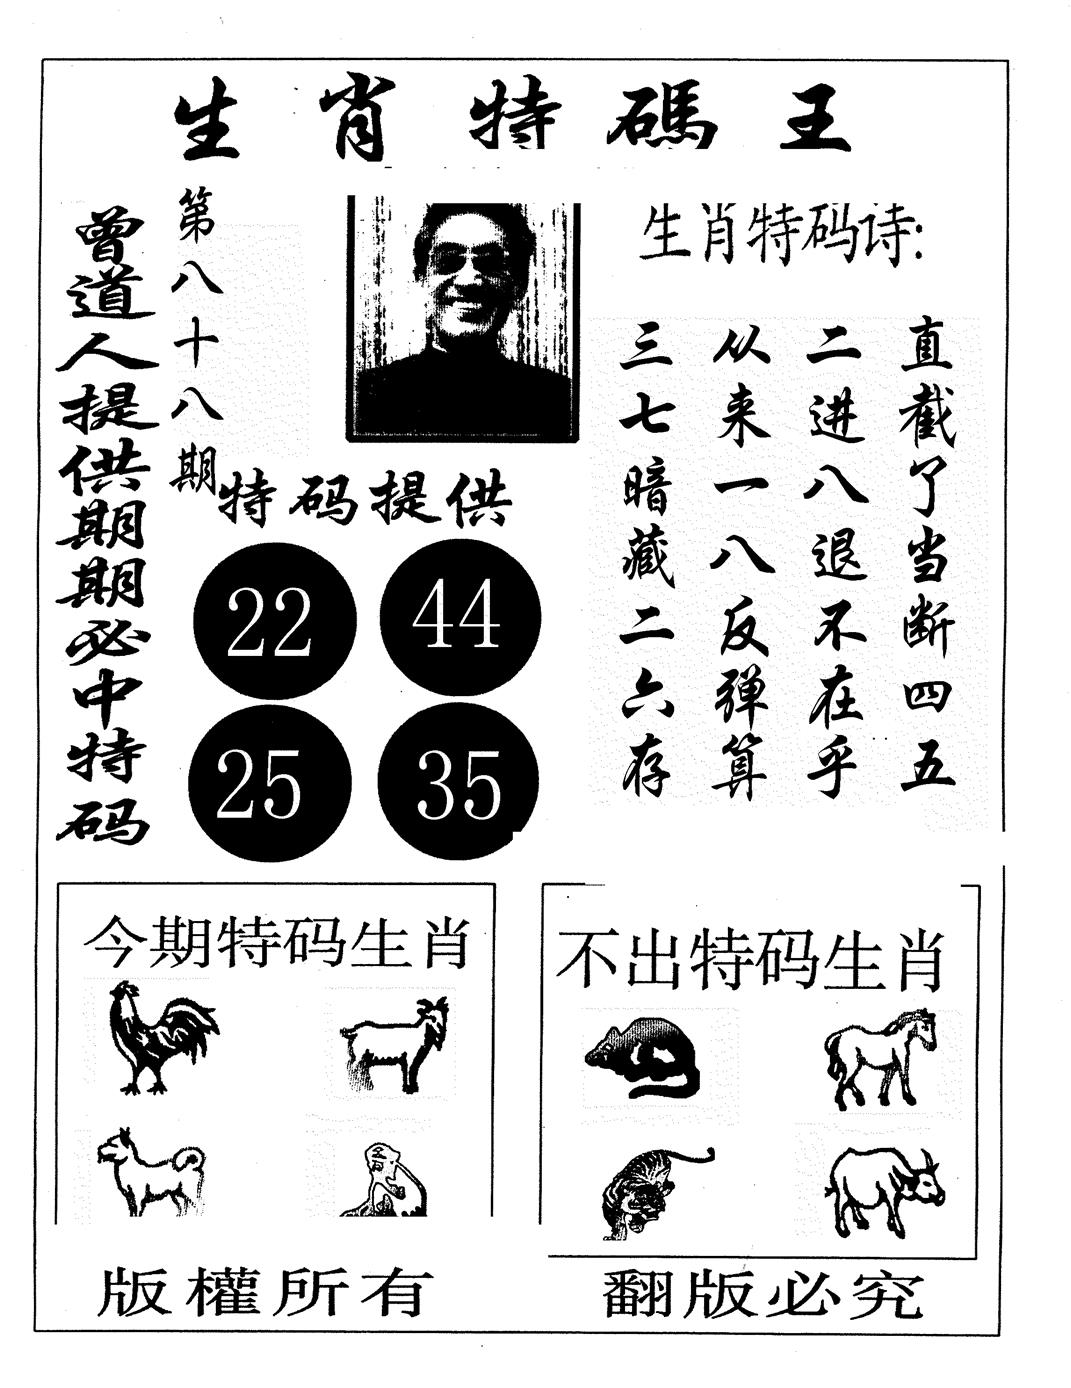 生肖特碼王
第八十八期
曾道人提供期期必中特码
特码提供
22
44
25
35
生肖特码诗:
直截了当断四五
二进八退不在乎
从来一八反弹算
三七暗藏二六存
今期特码生肖
不出特码生肖
版權所有
翻版必究